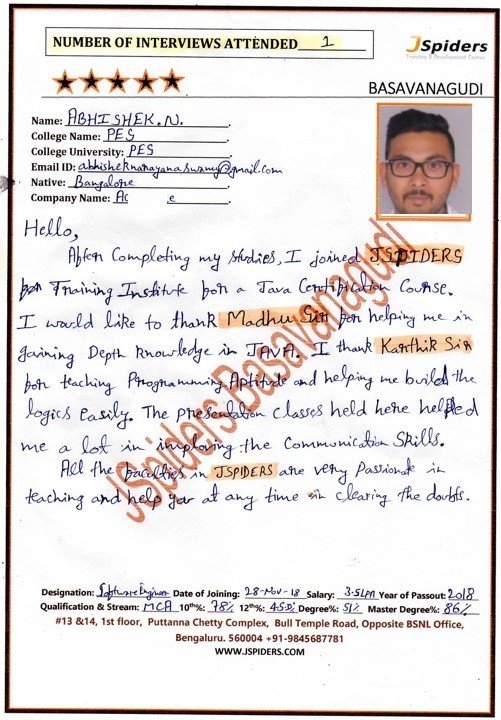 NUMBER OF INTERVIEWS ATTENDED 1
JSpiders
Training & Development Center
BASAVANAGUDI
Name: ABHISHEK.N.
College Name: PES
College University: PES
Email ID: abhisheknarayanaswamy@gmail.com
Native: Bangalore
Company Name: Ac e
Hello,
After Completing my studies, I joined JSPIDERS
for Training Institute for a Java Certification Course.
I would like to thank Madhu Sir for helping me in
gaining Depth Knowledge in JAVA. I thank Karthik Sir
for teaching Programming Aptitude and helping me build the
logics Easily. The presentation classes held here helped
me a lot in improving the Communication Skills.
All the faculties in JSPIDERS are very Passionate in
teaching and help you at any time in clearing the doubts.
JSpiders Basavanagudi
Designation: Software Engineer Date of Joining: 28-Nov-18 Salary: 3.5LPA Year of Passout: 2018
Qualification & Stream: MCA 10th%: 78% 12th%: Degree%: 51% Master Degree%: 86%
#13 &14, 1st floor, Puttanna Chetty Complex, Bull Temple Road, Opposite BSNL Office,
Bengaluru. 560004 +91-9845687781
WWW.JSPIDERS.COM